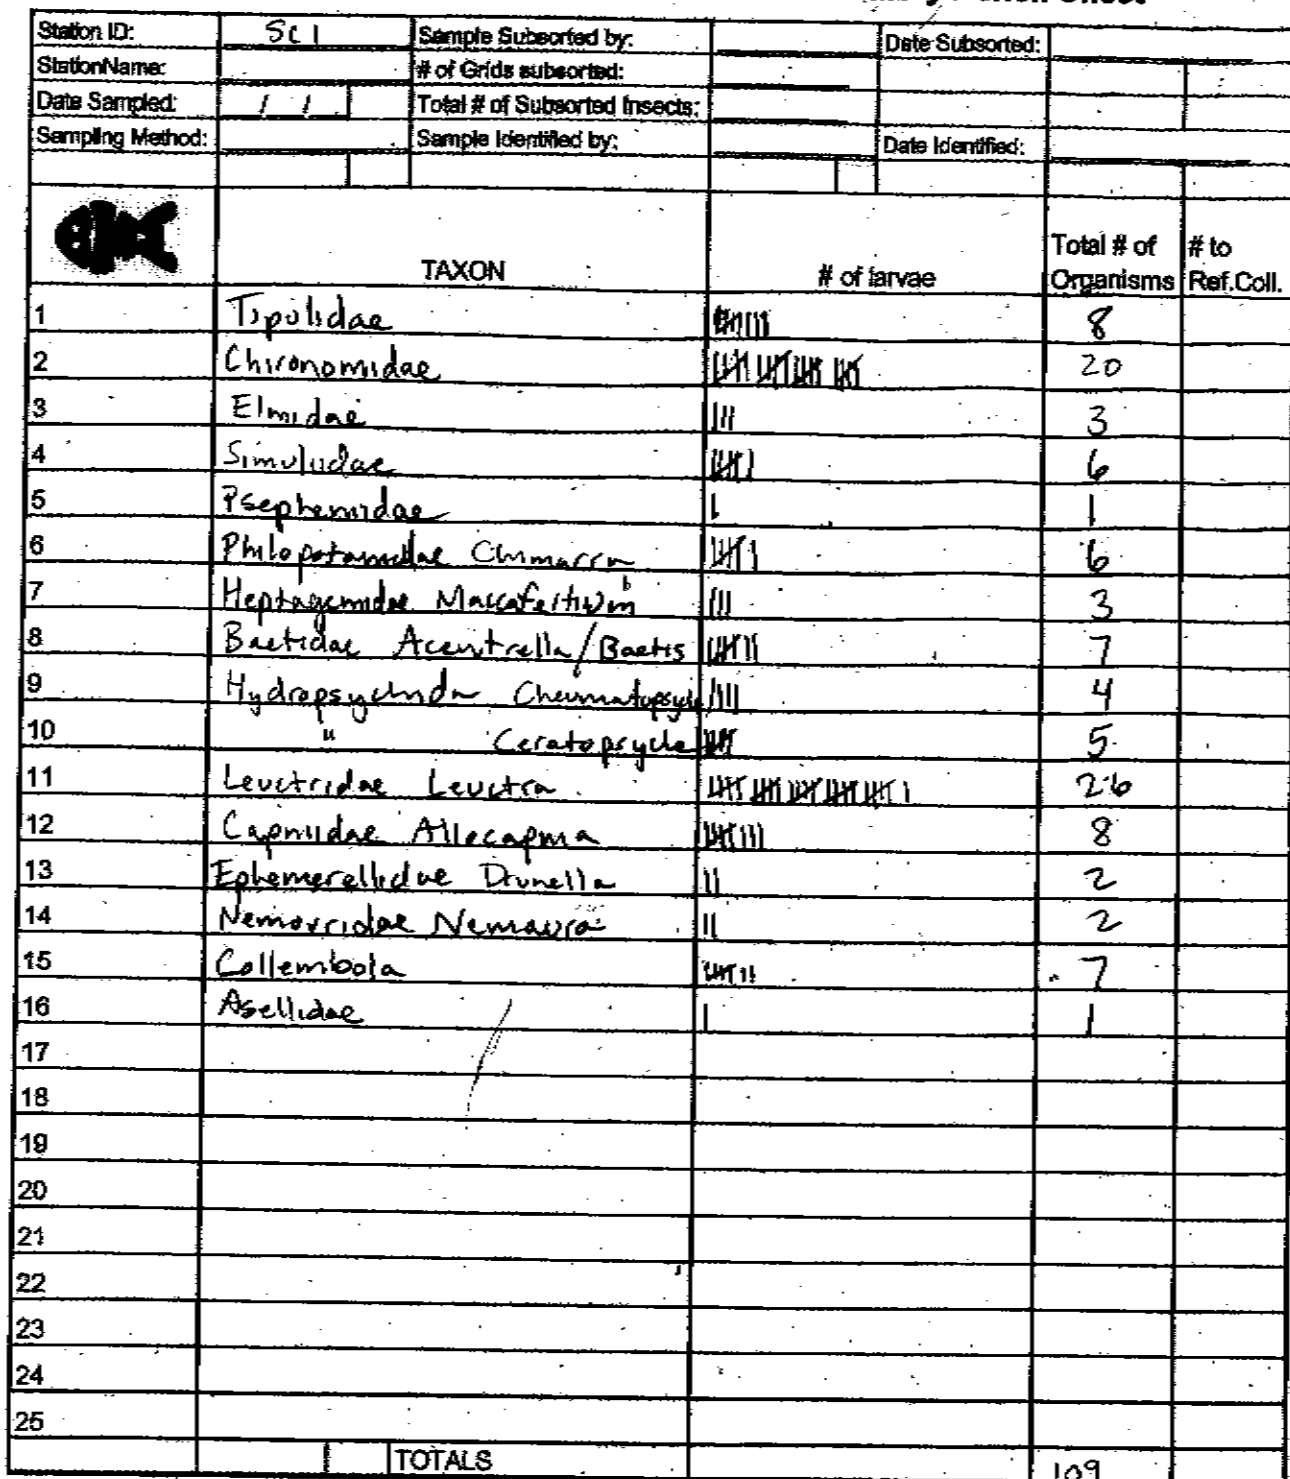 Station ID: SC1 Sample Subsorted by: Date Subsorted:
StationName: # of Grids subsorted:
Date Sampled: / / Total # of Subsorted Insects:
Sampling Method: Sample Identified by: Date Identified:
TAXON # of larvae Total # of Organisms # to Ref.Coll.
1 Tipulidae 8
2 Chironomidae 20
3 Elmidae 3
4 Simuliidae 6
5 Psephenidae 1
6 Philopotamidae Chimarra 6
7 Heptageniidae Maccaffertium 3
8 Baetidae Acentrella/Baetis 7
9 Hydropsychidae Cheumatopsyche 4
10 " Ceratopsyche 5
11 Leuctridae Leuctra 26
12 Capniidae Allocapnia 8
13 Ephemerellidae Drunella 2
14 Nemouridae Nemoura 2
15 Collembola 7
16 Asellidae 1
17
18
19
20
21
22
23
24
25
TOTALS 109